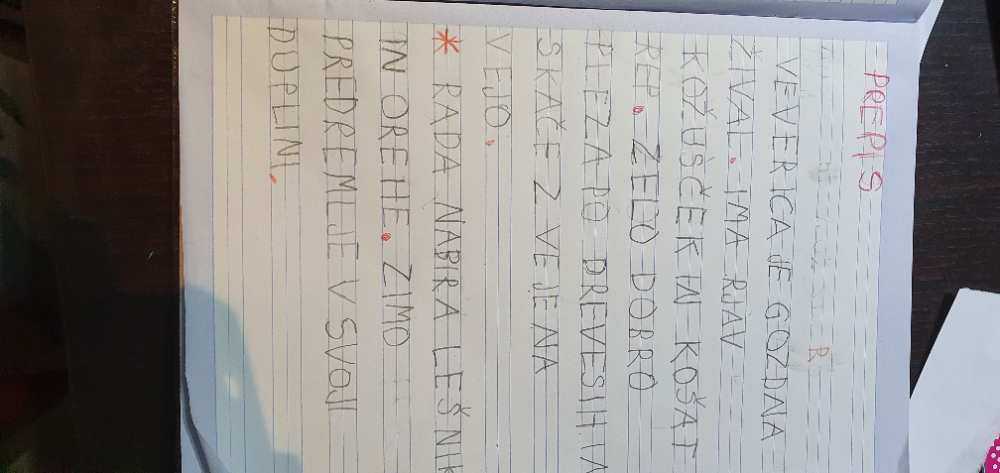 PREPIS
VEVERICA JE GOZDNA
ŽIVAL. IMA RJAV
KOŽUŠČEK IN KOŠAT
REP. ZELO DOBRO
PLEZA PO DREVESIH IN
SKAČE Z VEJE NA
VEJO.
* RADA NABIRA LEŠNIK
IN OREHE. ZIMO
PREDREMLJE V SVOJI
DUPLINI.